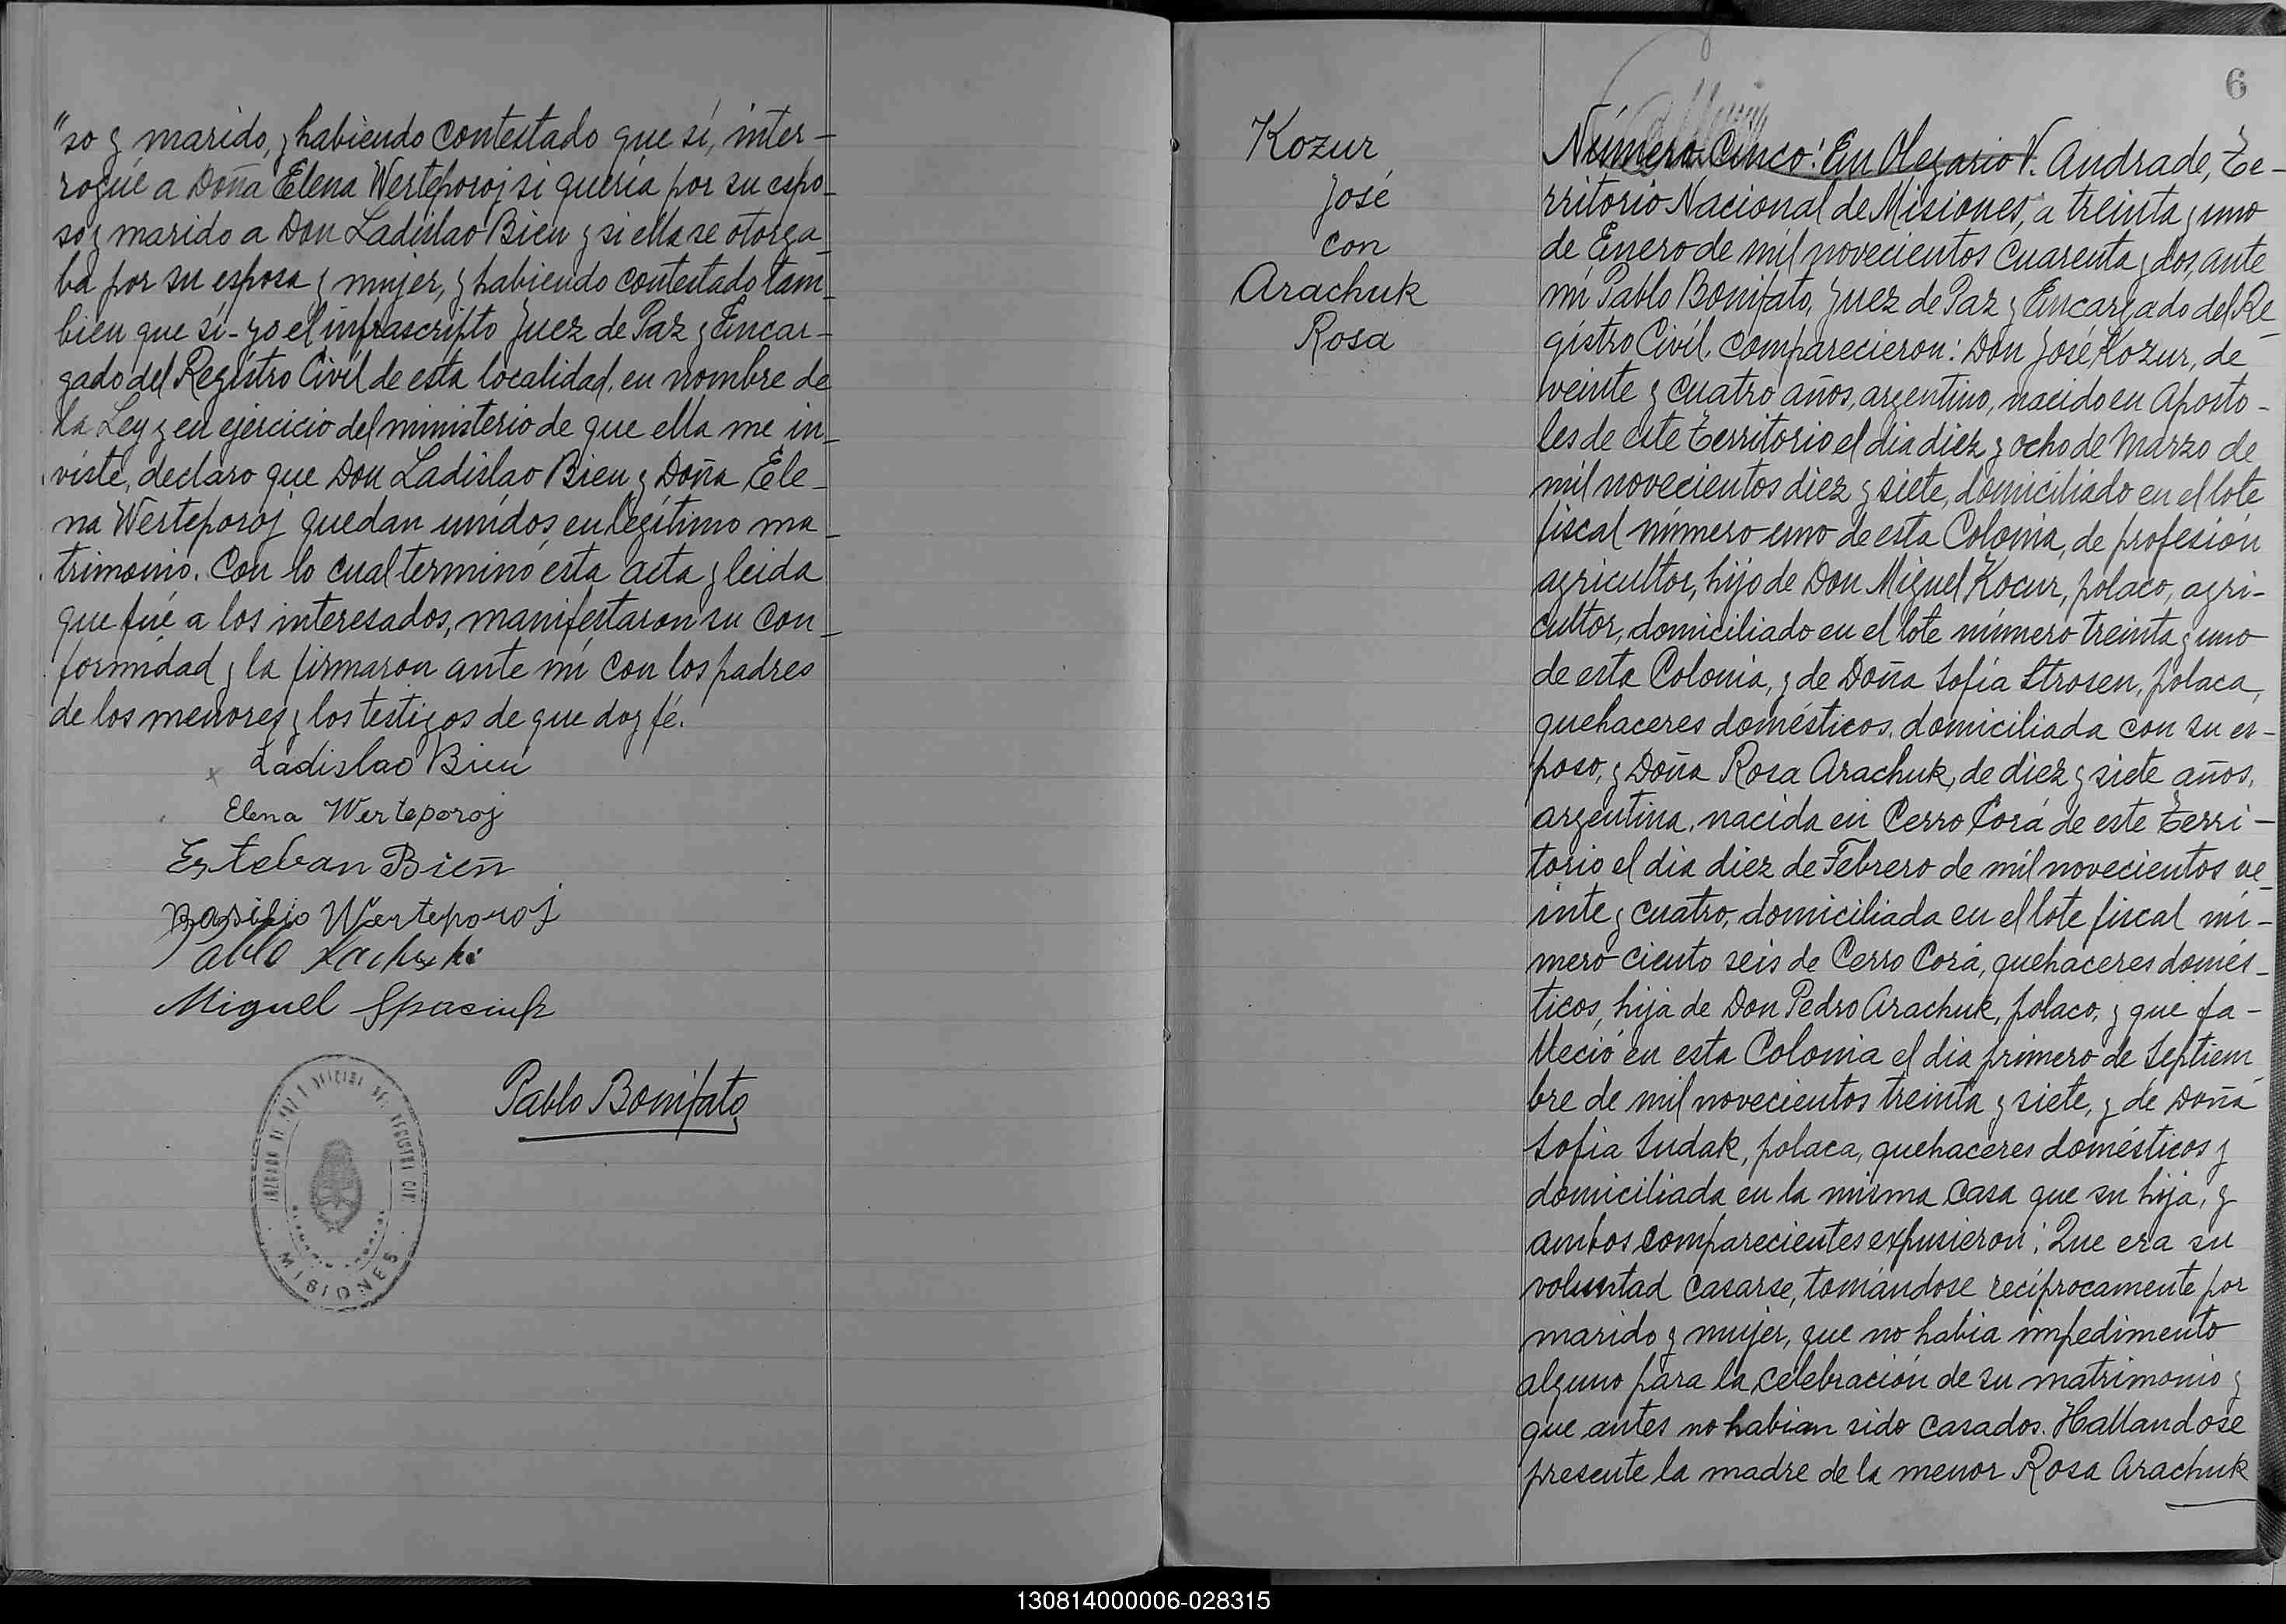 "so y marido, y habiendo contestado que sí, inter-
rogué a Doña Elena Werteporoj si quería por su espo-
so y marido a Don Ladislao Bien y si ella se otorga-
ba por su esposa y mujer, y habiendo contestado tam-
bien que sí - yo el infrascripto Juez de Paz y Encar-
gado del Registro Civil de esta localidad, en nombre de
la Ley y en ejercicio del ministerio de que ella me in-
viste, declaro que Don Ladislao Bien y Doña Ele-
na Werteporoj quedan unidos en legítimo ma-
trimonio. Con lo cual terminó esta acta y leida
que fué a los interesados, manifestaron su con-
formidad y la firmaron ante mí con los padres
de los menores y los testigos de que doy fé.
Ladislao Bien
Elena Werteporoj
Esteban Bień
Basilio Werteporoj
Pablo
Miguel Spasiuk
Pablo Bonifato
JUZGADO DE PAZ Y OFICINA DEL REGISTRO CIVIL
MISIONES
6
Kozur
José
con
Arachuk
Rosa
Número Cinco: En Olegario V. Andrade, Te-
rritorio Nacional de Misiones, a treinta y uno
de Enero de mil novecientos cuarenta y dos, ante
mí Pablo Bonifato, Juez de Paz y Encargado del Re-
gistro Civil, comparecieron: Don José Kozur, de
veinte y cuatro años, argentino, nacido en Aposto-
les de este Territorio el dia diez y ocho de Marzo de
mil novecientos diez y siete, domiciliado en el lote
fiscal número uno de esta Colonia, de profesión
agricultor, hijo de Don Miguel Kocur, polaco, agri-
cultor, domiciliado en el lote número treinta y uno
de esta Colonia, y de Doña Sofía Strosen, polaca,
quehaceres domésticos, domiciliada con su es-
poso, y Doña Rosa Arachuk, de diez y siete años,
argentina, nacida en Cerro Corá de este Terri-
torio el dia diez de Febrero de mil novecientos ve-
inte y cuatro, domiciliada en el lote fiscal nú-
mero ciento seis de Cerro Corá, quehaceres domés-
ticos, hija de Don Pedro Arachuk, polaco, y que fa-
lleció en esta Colonia el dia primero de Septiem-
bre de mil novecientos treinta y siete, y de Doña
Sofia Sudak, polaca, quehaceres domésticos y
domiciliada en la misma casa que su hija, y
ambos comparecientes expusieron: Que era su
voluntad casarse, tomándose recíprocamente por
marido y mujer, que no habia impedimento
alguno para la celebración de su matrimonio y
que antes no habian sido casados. Hallandose
presente la madre de la menor Rosa Arachuk
130814000006-028315